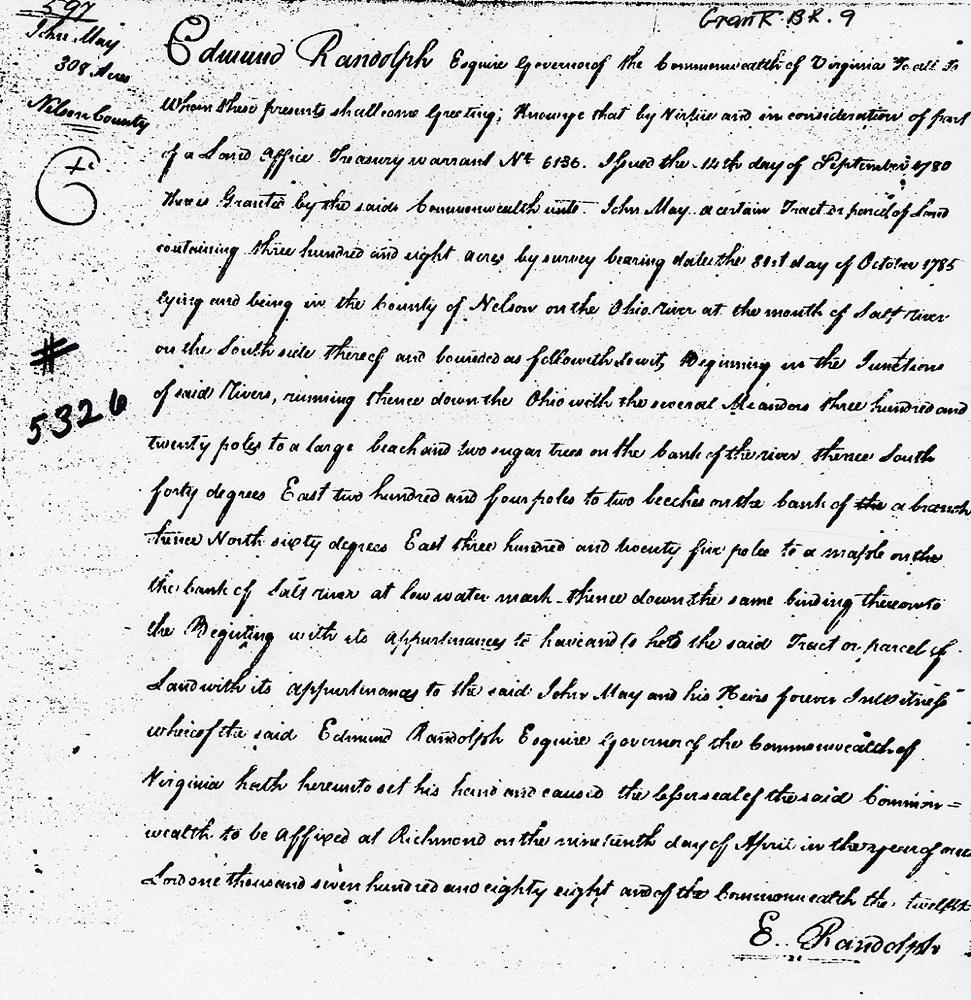 597
Grant BK. 9
John May
308 Acres
Nelson County
# 5326
Edmund Randolph Esquire Governor of the Commonwealth of Virginia To all to
Whom these presents shall come Greeting; Know ye that by Virtue and in consideration of part
of a Land Office Treasury warrant No 6136. Issued the 14th day of September 1780
there is Granted by the said Commonwealth unto John May a certain Tract or parcel of Land
containing three hundred and eight acres by survey bearing date the 31st day of October 1785
lying and being in the County of Nelson on the Ohio River at the mouth of Salt River
on the South side thereof and bounded as followeth to wit, Beginning in the Junction
of said Rivers, running thence down the Ohio with the several Meanders three hundred and
twenty poles to a large beach and two sugar trees on the bank of the river thence South
forty degrees East two hundred and four poles to two beeches on the bank of the a branch
thence North sixty degrees East three hundred and twenty five poles to a maple on the
the bank of Salt river at low water mark thence down the same binding thereon to
the Beginning with its appurtenances to have and to hold the said Tract or parcel of
Land with its appurtenances to the said John May and his Heirs forever In Witness
whereof the said Edmund Randolph Esquire Governor of the Commonwealth of
Virginia hath hereunto set his hand and caused the lesser seal of the said Common=
wealth to be affixed at Richmond on the nineteenth day of April in the year of our
Lord one thousand seven hundred and eighty eight and of the Commonwealth the twelfth
E. Randolph